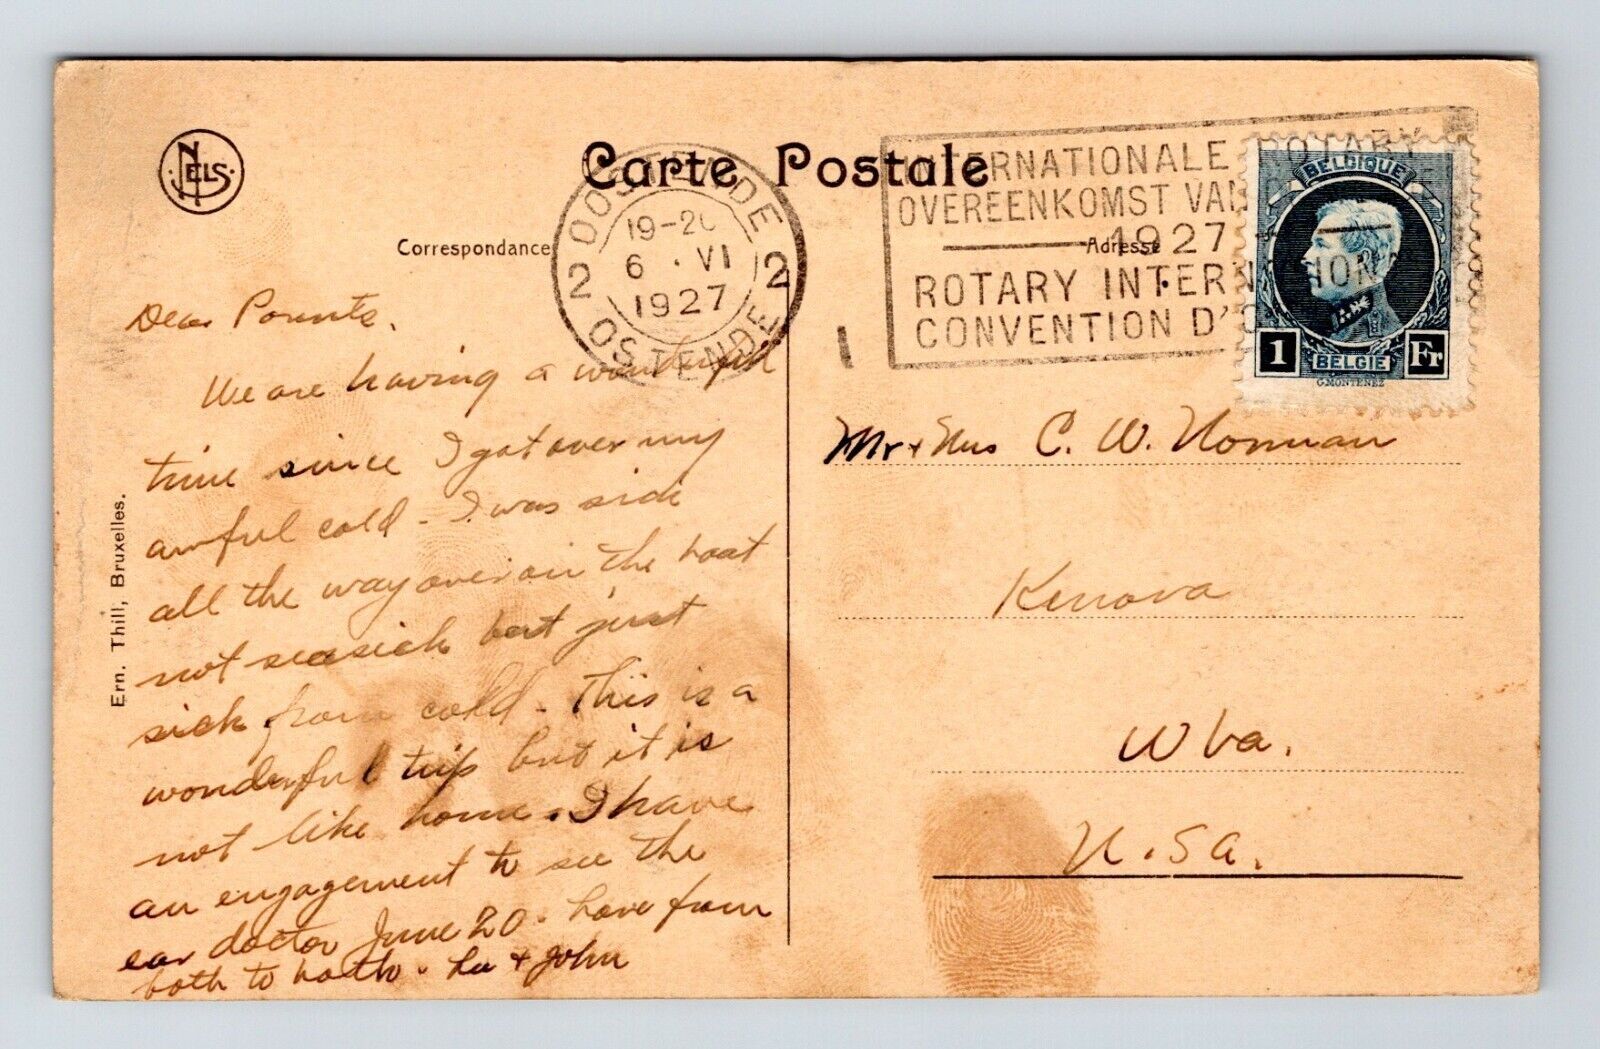 NELS.
Carte Postale
Correspondance
Adresse
OOSTENDE
2 2
19-20
6 . VI
1927
OSTENDE
INTERNATIONALE ROTARY
OVEREENKOMST VAN
1927
ROTARY INTERNATIONAL
CONVENTION D'O
BELGIQUE
1 BELGIE Fr
G.MONTENEZ
Dear Parents,
We are having a wonderful
time since I got over my
awful cold - I was sick
all the way over on the boat
not seasick but just
sick from cold - This is a
wonderful trip but it is
not like home. I have
an engagement to see the
ear doctor June 20. Love from
both to both. Lu + John
Mr + Mrs C. W. Norman
Kenova
W Va.
U.Sa.
Ern. Thill, Bruxelles.